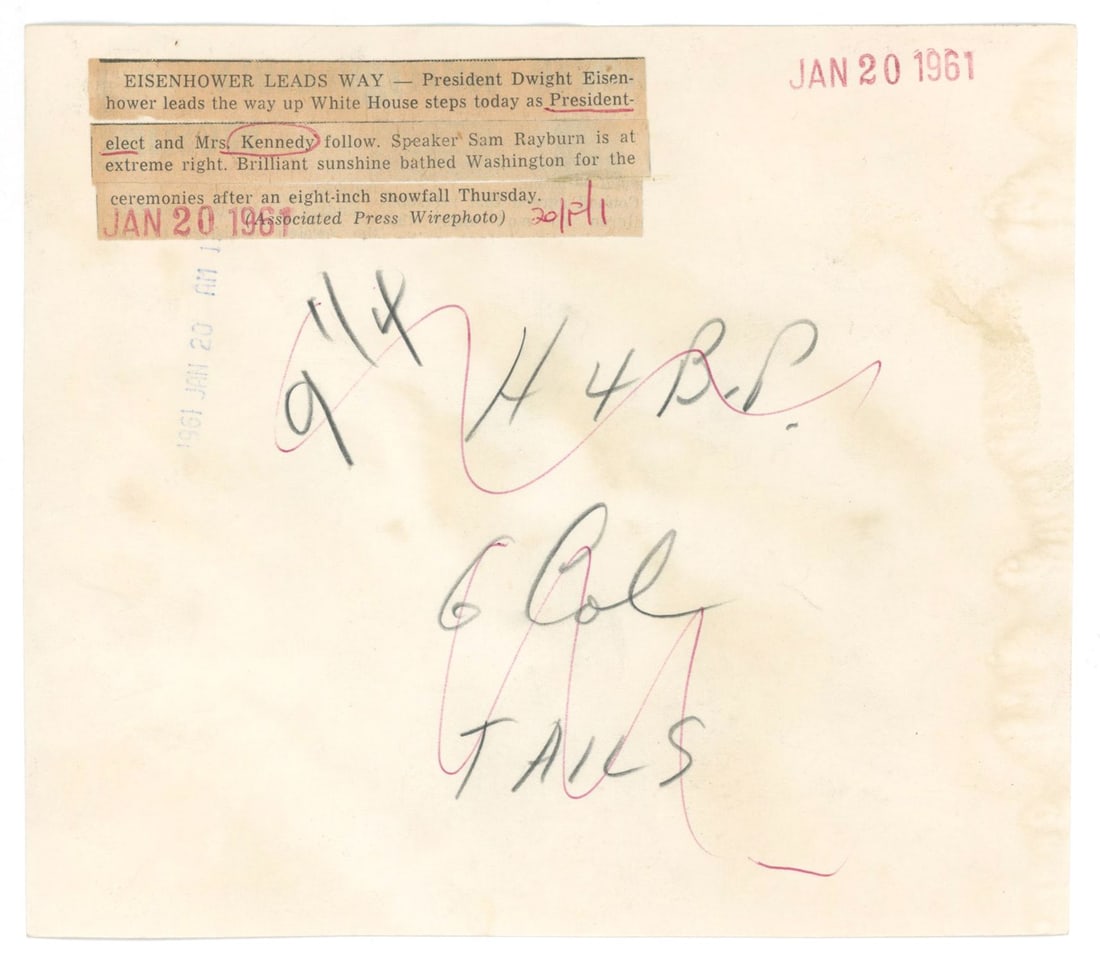 JAN 20 1961
EISENHOWER LEADS WAY — President Dwight Eisen-
hower leads the way up White House steps today as President-
elect and Mrs. Kennedy follow. Speaker Sam Rayburn is at
extreme right. Brilliant sunshine bathed Washington for the
ceremonies after an eight-inch snowfall Thursday.
(Associated Press Wirephoto)
JAN 20 1961
1961 JAN 20 AM
9 1/4
H 4 B.P.
6 Col
TAILS